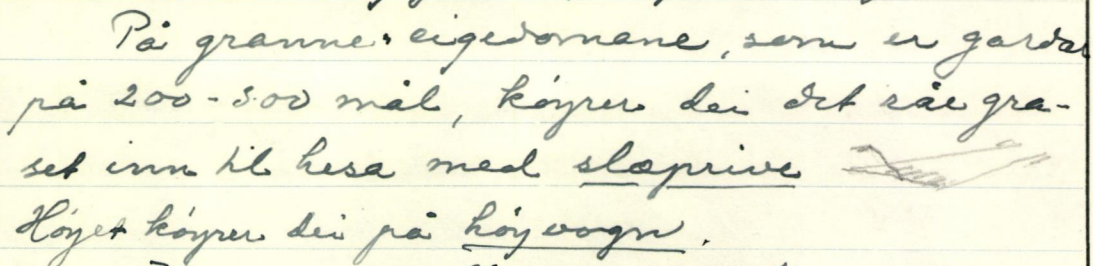 På granne-eigedomane, som er gardar
på 200-300 mål, køyrer dei det råe gra-
set inn til hesa med slæprive
Høyet køyrer dei på høyvogn.